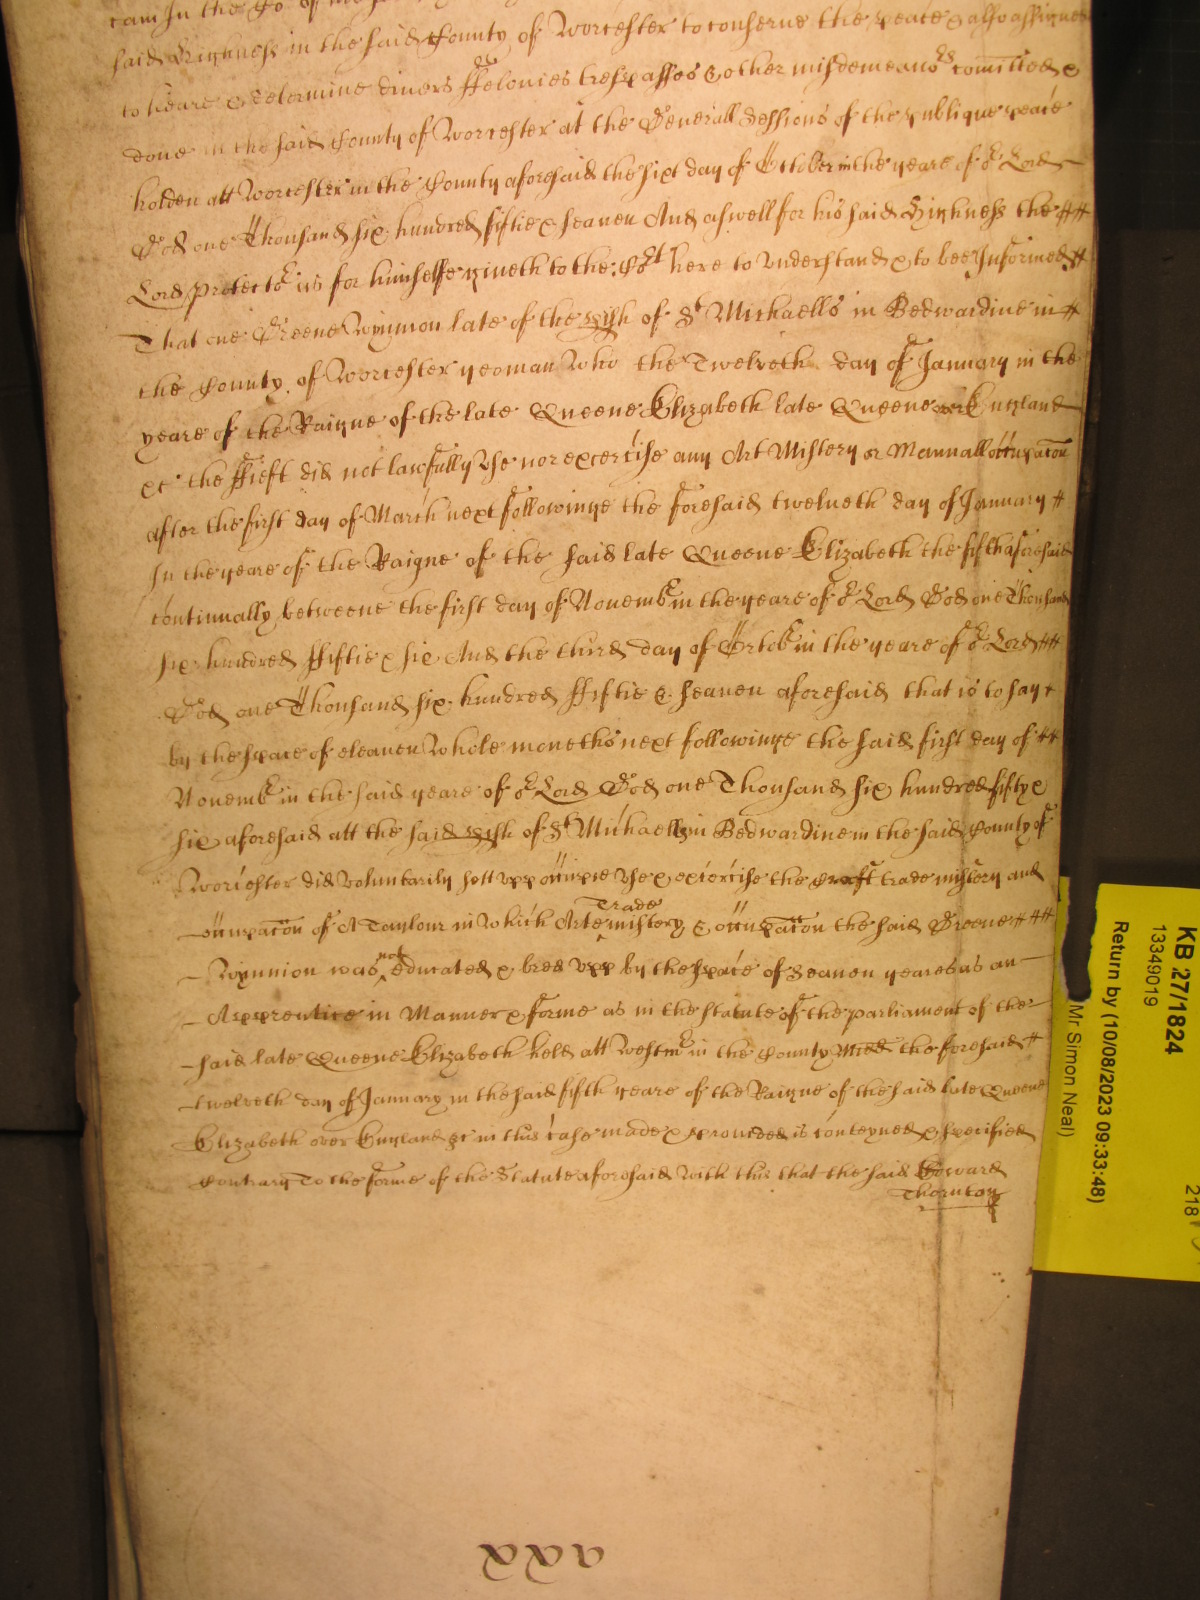 said Highness in the said County of Worcester to conserve the peace & also assigned
to heare & determine divers ffelonies trespasses & other misdemeano:rs comitted &
done in the said County of Worcester at the Generall Sessions of the publique peace
holden att Worcester in the County aforesaid the sixt day of October in the yeare of o:r Lord
God one Thousand six hundred fiftie & seaven And aswell for his said Highness the
Lord protecto:r as for himselfe giveth to the Co:rt here to understand & to bee Informed
That one Greene Wynnion late of the pish of S:t Michaells in Bedwardine in
the County of Worcester yeoman Who the Twelveth day of January in the
yeare of the Raigne of the late Queene Elizabeth late Queene over England
&c the ffieft did not lawfully Use nor excercise any Art Mistery or Mannall occupacon
after the first day of March next followinge the foresaid twelveth day of January
In the yeare of the Raigne of the said late Queene Elizabeth the fifth aforesaid
continually betweene the first day of Novemb:r in the yeare of o:r Lord God one Thousand
six hundred ffiftie & six And the third day of Octob:r in the yeare of o:r Lord
God one Thousand six hundred ffiftie & seaven aforesaid that is to say
by the space of eleaven Whole moneths next followinge the said first day of
Novemb:r in the said yeare of o:r Lord God one Thousand six hundred fifty &
six aforesaid att the said pish of S:t Michaells in Bedwardine in the said County of
Worcester did voluntarily sett upp occupie Use & exercise the craft trade mistery and
occupacon of A Taylour in Which Arte Trade mistery & occupacon the said Greene
Wynnion was not educated & bred upp by the space of Seaven yeares as an
Apprentice in Manner & forme as in the statute of the parliament of the
said late Queene Elizabeth held att Westm:r in the County Midd the foresaid
twelveth day of January in the said fifth yeare of the Raigne of the said late Queene
Elizabeth over England &c in this case made & provided is conteyned & specified
Contrary To the forme of the Statute aforesaid With this that the said Edward
Thornton
KB 27/1824
13349019
Return by (10/08/2023 09:33:48)
Mr Simon Neal)
218